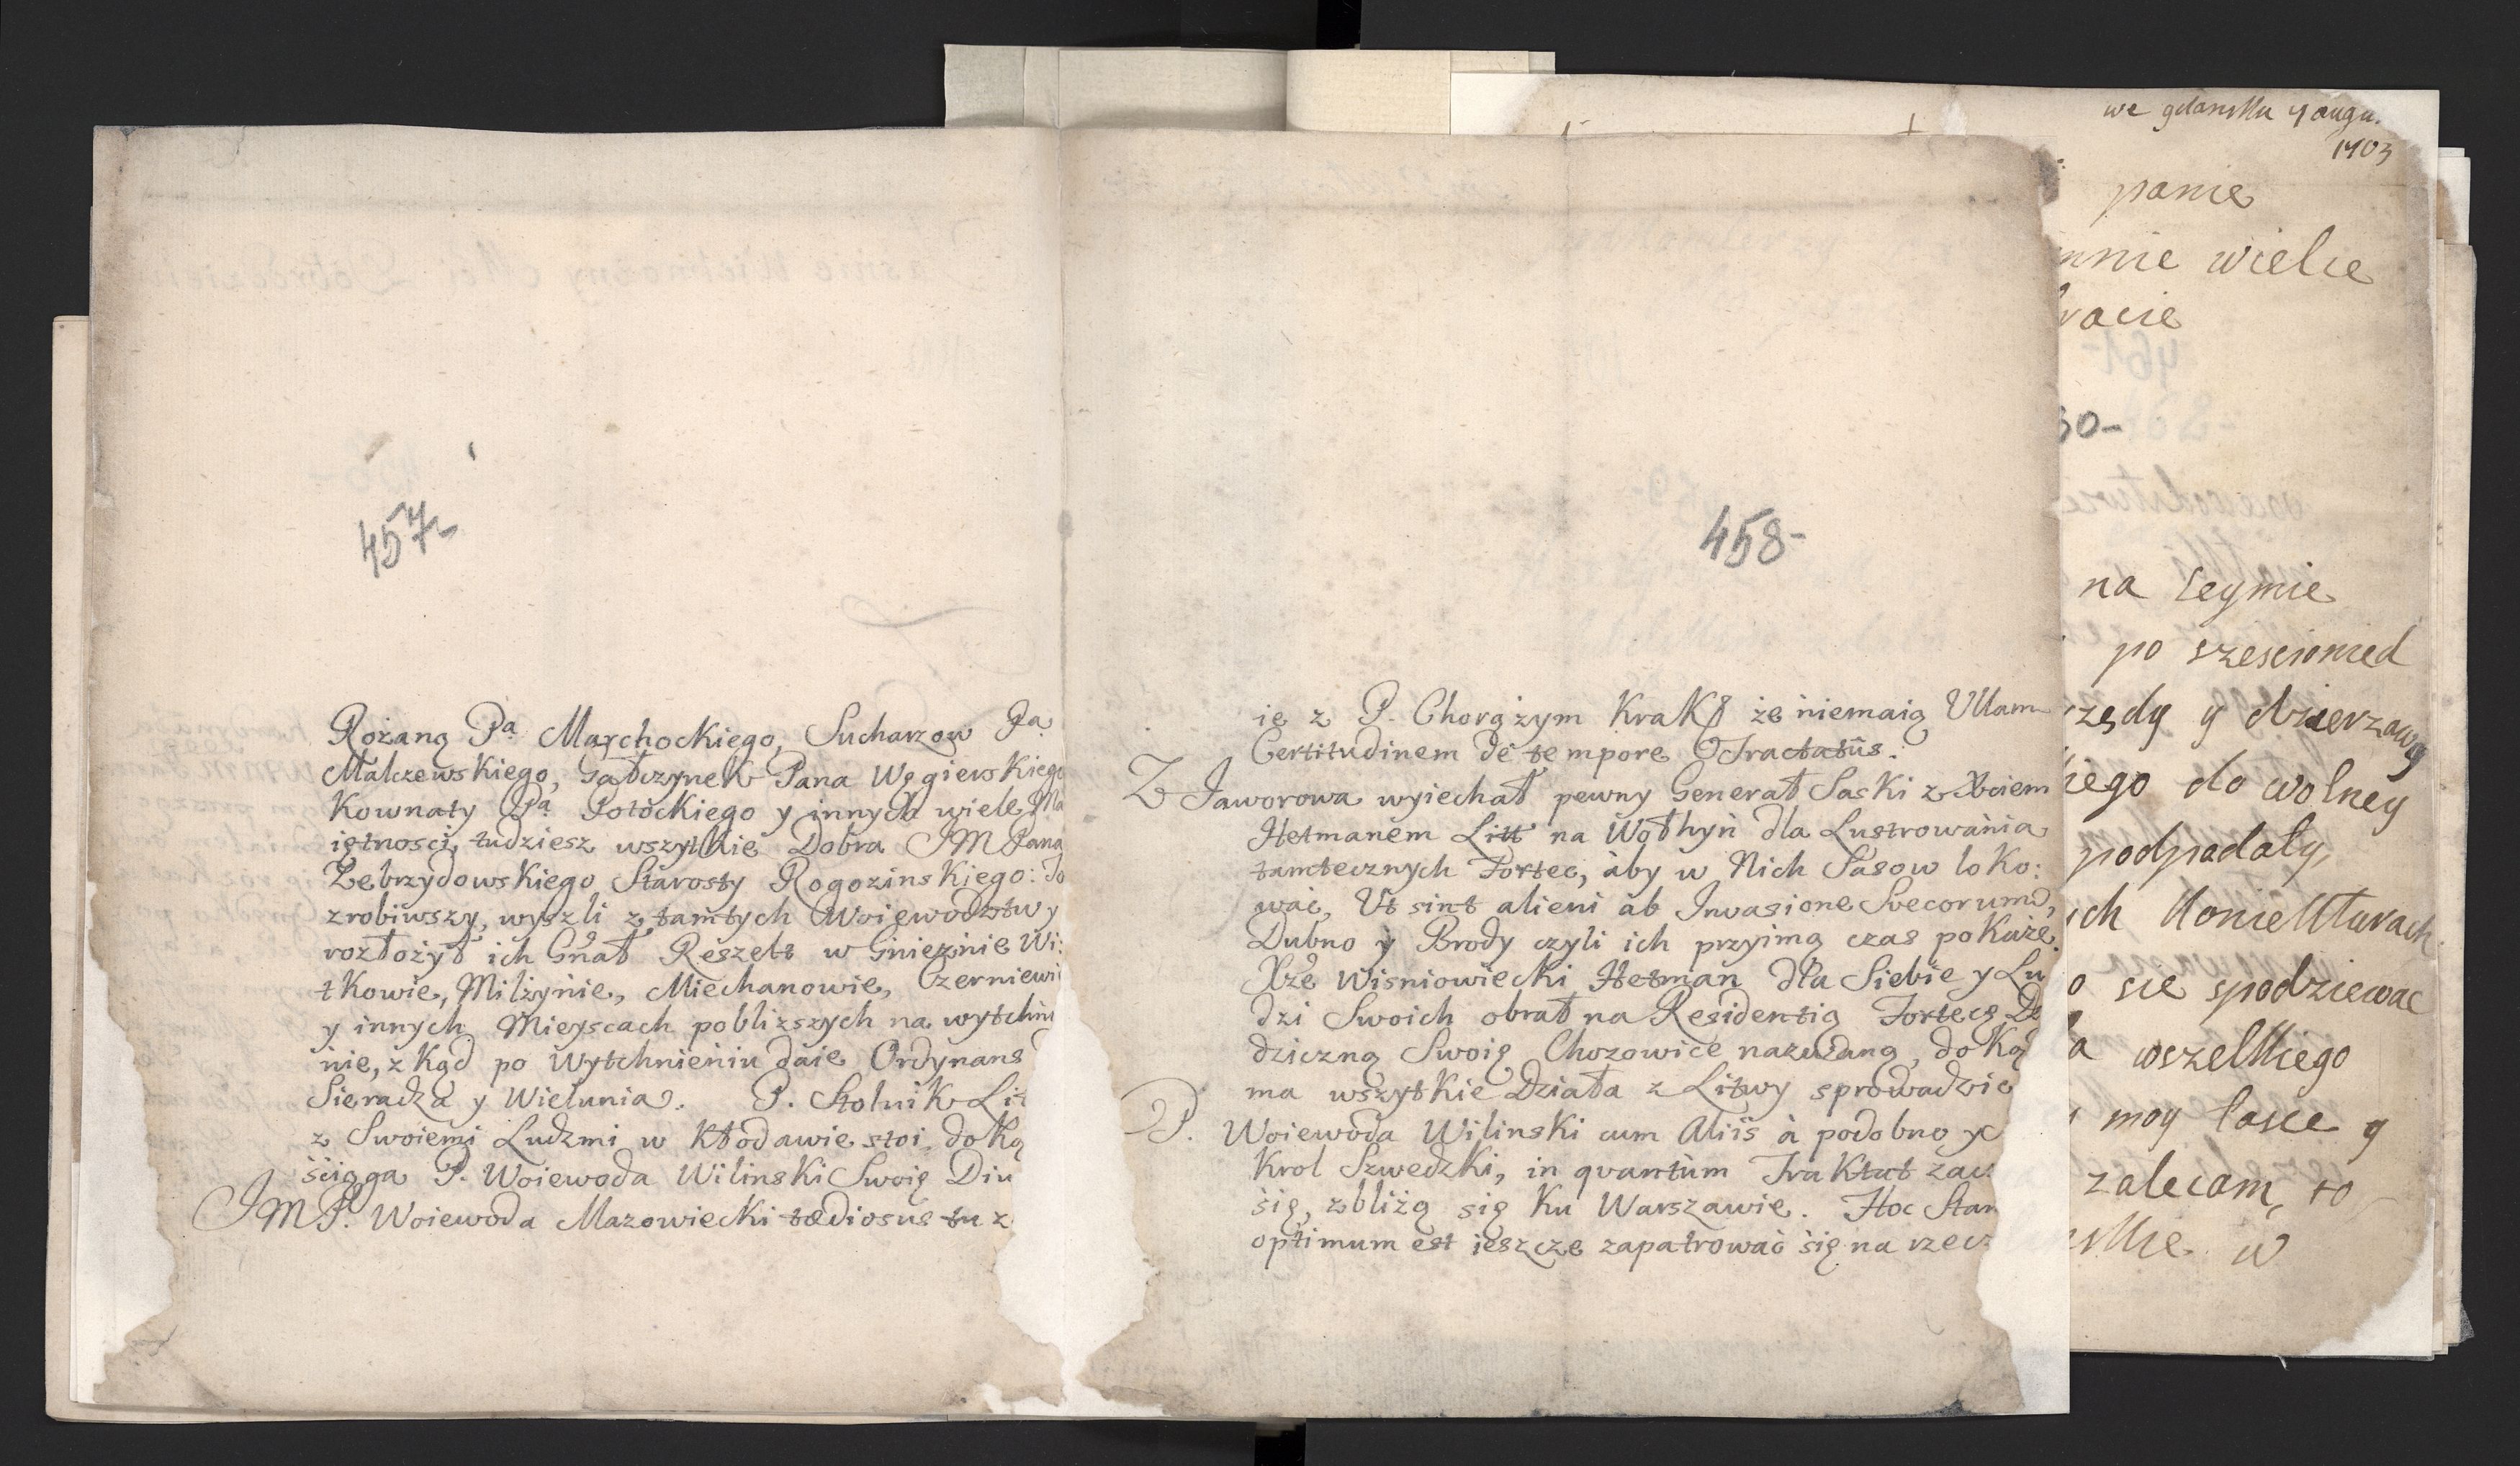 457-
Rożaną Pa Marchockiego, Sucharzow Pa
Malczewskiego, Gałczynek Pana Węgierskiego
Kownaty Pa Potockiego y innych wiele Ma
iętnosci, tudziesz wszytkie Dobra JM Pana
Zebrzydowskiego Starosty Rogozinskiego: To
zrobiwszy, wyszli z tamtych Woiewodztw y
rozłożył ich Gnał Reszelt w Gnieznie Wi:
tkowie, Milżynie, Miechanowie, Czerniewi
y innych Mieyscach poblizszych na wytchni
nie, z kąd po Wytchnieniu daie Ordynans
Sieradza y Wielunia. P. Stolnik Lit
z Swoiemi Ludzmi w Kłodawie stoi, do ką
ściąga P. Woiewoda Wilinski Swoię Diu
JMP. Woiewoda Mazowiecki tædiosus tu z
458-
ie z P. Chorążym Krak że niemaią Ullam
Certitudinem de tempore Tractatûs.
Z Jaworowa wyiechał pewny Generał Saski z Xciem
Hetmanem Litt na Wołhyń dla Lustrowania
tamtecznych Fortec, aby w Nich Sasow loko:
wać, Ut sint alieni ab Invasione Svecorum,
Dubno y Brody czyli ich przyimą czas pokaże.
Xże Wisniowiecki Hetman dla Siebie y Lu
dzi Swoich obrał na Residentią Fortecę De
dziczną Swoię Chozowice nazwaną, do ką
ma wszytkie Działa z Litwy sprowadzic
P. Woiewoda Wilinski cum Aliis à podobno y
Krol Szwedzki, in qvantùm Traktat zac
się, zbliżą się ku Warszawie. Hoc Stan
optimum est ieszcze zapatrować się na rzec
we gdansku 4 augu.
1703
panie
mnie wielce
bracie
60-
na seymie
po szescionied
rzędy y dzierzawy
iego do wolney
podpadały,
ych koniekturach
o sie spodziewac
wszelkiego
moy łasce y
zalecam, to
w